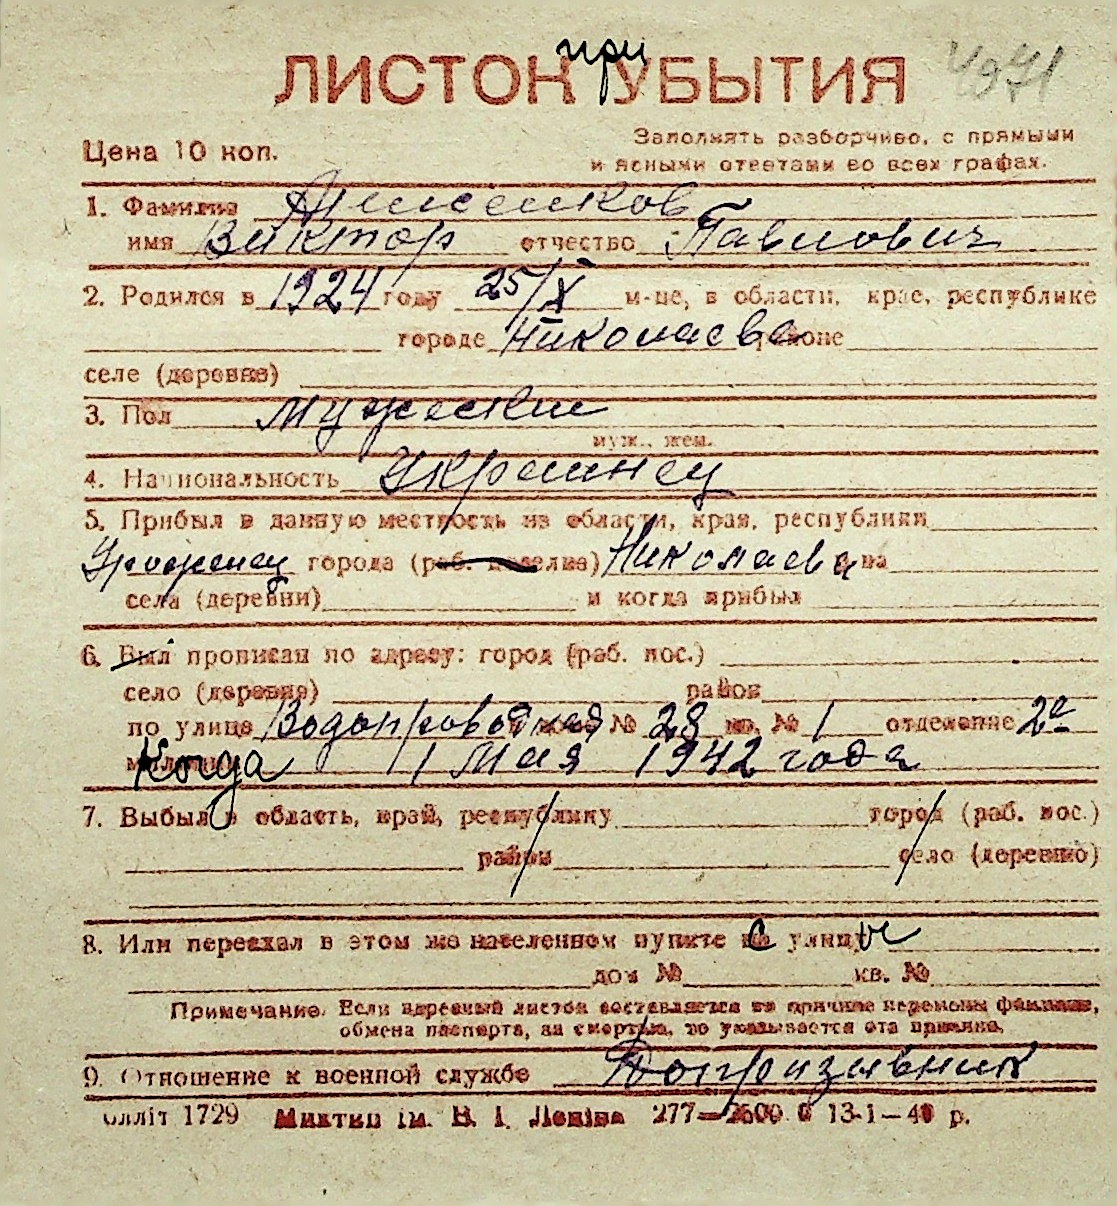 ЛИСТОК при УБЫТИЯ
Цена 10 коп.
Заполнять разборчиво, с прямыми
и ясными ответами во всех графах.
1. Фамилия
имя Виктор отчество Павлович
2. Родился в 1924 году 25/X м-це, в области, крае, республике
городе Николаеве районе
селе (деревне)
3. Пол мужеский
муж., жен.
4. Национальность Украинец
5. Прибыл в данную местность из области, края, республики
Уроженец города (раб. поселка) Николаева
села (деревни) и когда прибыл
6. Был прописан по адресу: город (раб. пос.)
село (деревня) район
по улице Водопроводная № 28 кв. № 1 отделение 2е
Когда 1 Мая 1942 года
7. Выбыл в область, край, республику город (раб. пос.)
район село (деревню)
8. Или переехал в этом же населенном пункте с улицы
дом № кв. №
Примечание. Если адресный листок составляется по причине перемены фамилии,
обмена паспорта, за смертью, то указывается эта причина.
9. Отношение к военной службе Допризывник
олліт 1729 Миктип ім. В. І. Леніна 277—2500 0 13-1—40 р.